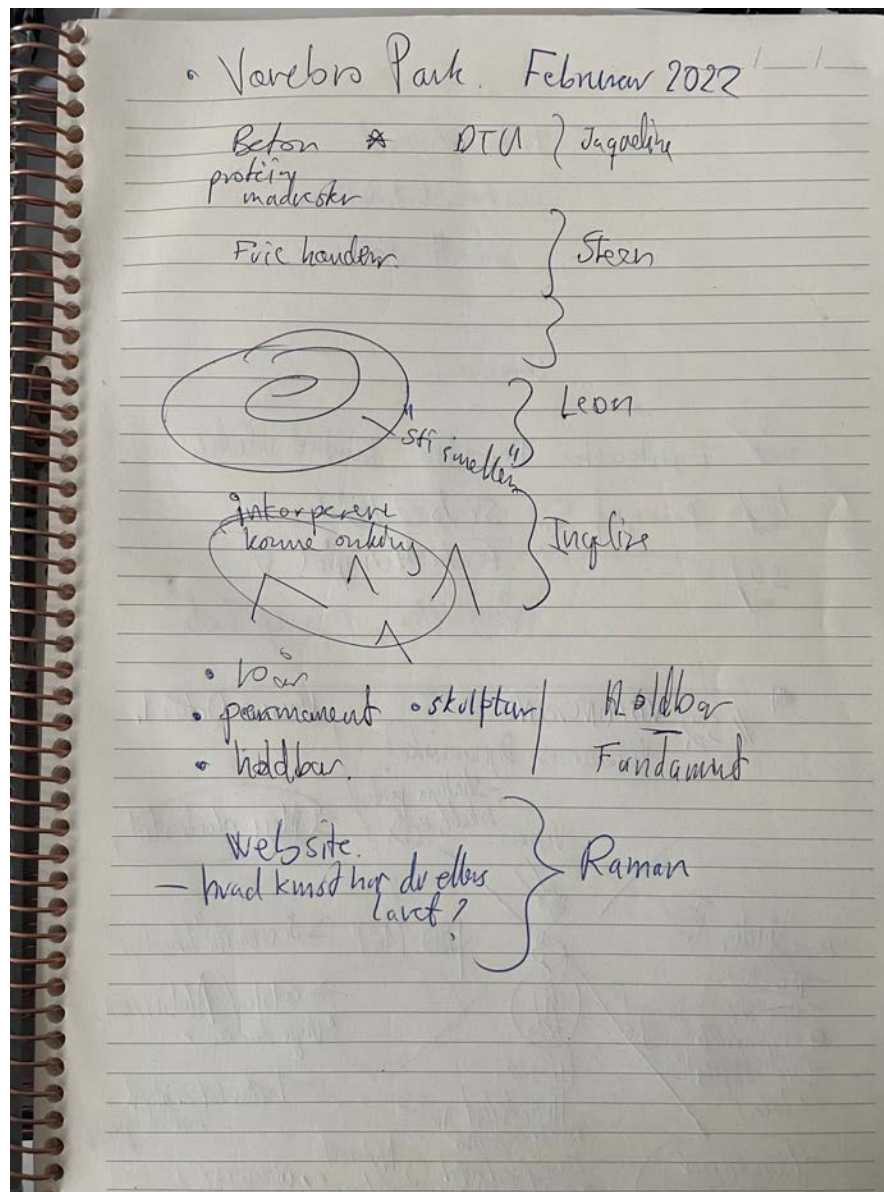 • Værebro Park. Februar 2022
Beton * DTU } Jaqueline
protein
madrester
Frie hænder. } Stern
Leon
"sti imellem"
inkorperere
Ingelise
• 10 år
• permanent • skulptur | Holdbar
• holdbar. Fundament
Website. } Raman
— hvad kunst har du ellers
lavet?